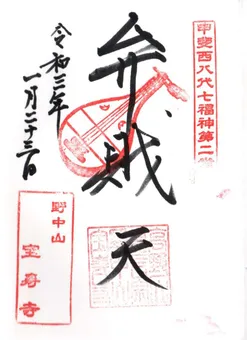 甲斐西八代七福神第二
弁財天
令和三年
一月二十三日
野中山
宝寿寺